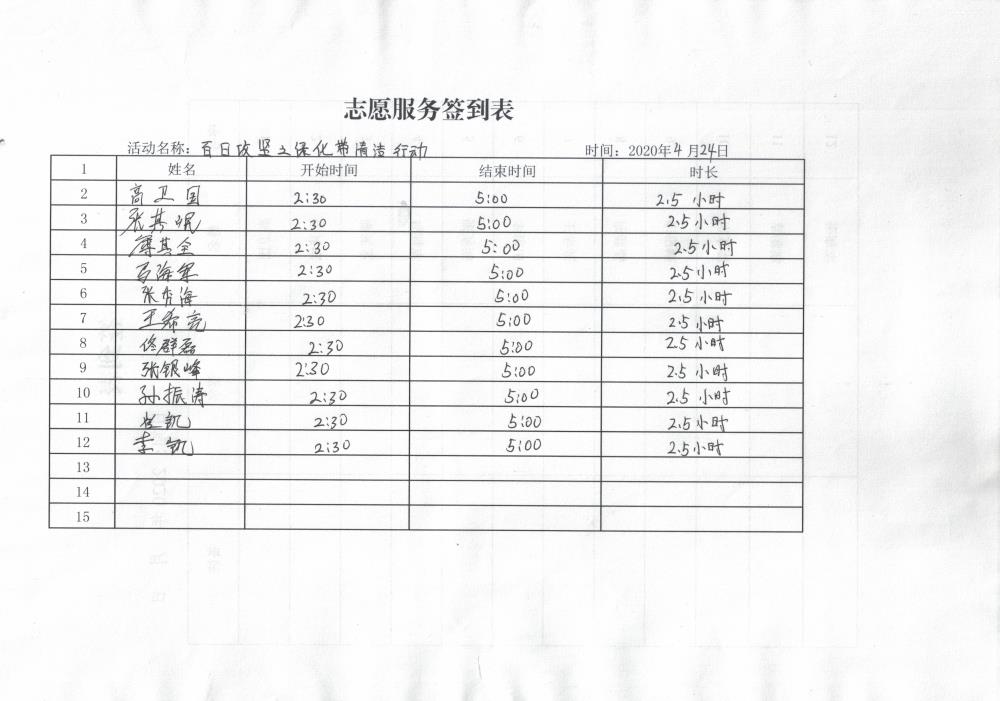 志愿服务签到表
活动名称：百日攻坚之绿化带清洁行动 时间：2020年4月24日
1 姓名 开始时间 结束时间 时长
2 高卫国 2:30 5:00 2.5小时
3 2:30 5:00 2.5小时
4 2:30 5:00 2.5小时
5 2:30 5:00 2.5小时
6 张秀海 2:30 5:00 2.5小时
7 王希亮 2:30 5:00 2.5小时
8 佟群磊 2:30 5:00 2.5小时
9 张银峰 2:30 5:00 2.5小时
10 孙振涛 2:30 5:00 2.5小时
11 2:30 5:00 2.5小时
12 李凯 2:30 5:00 2.5小时
13
14
15